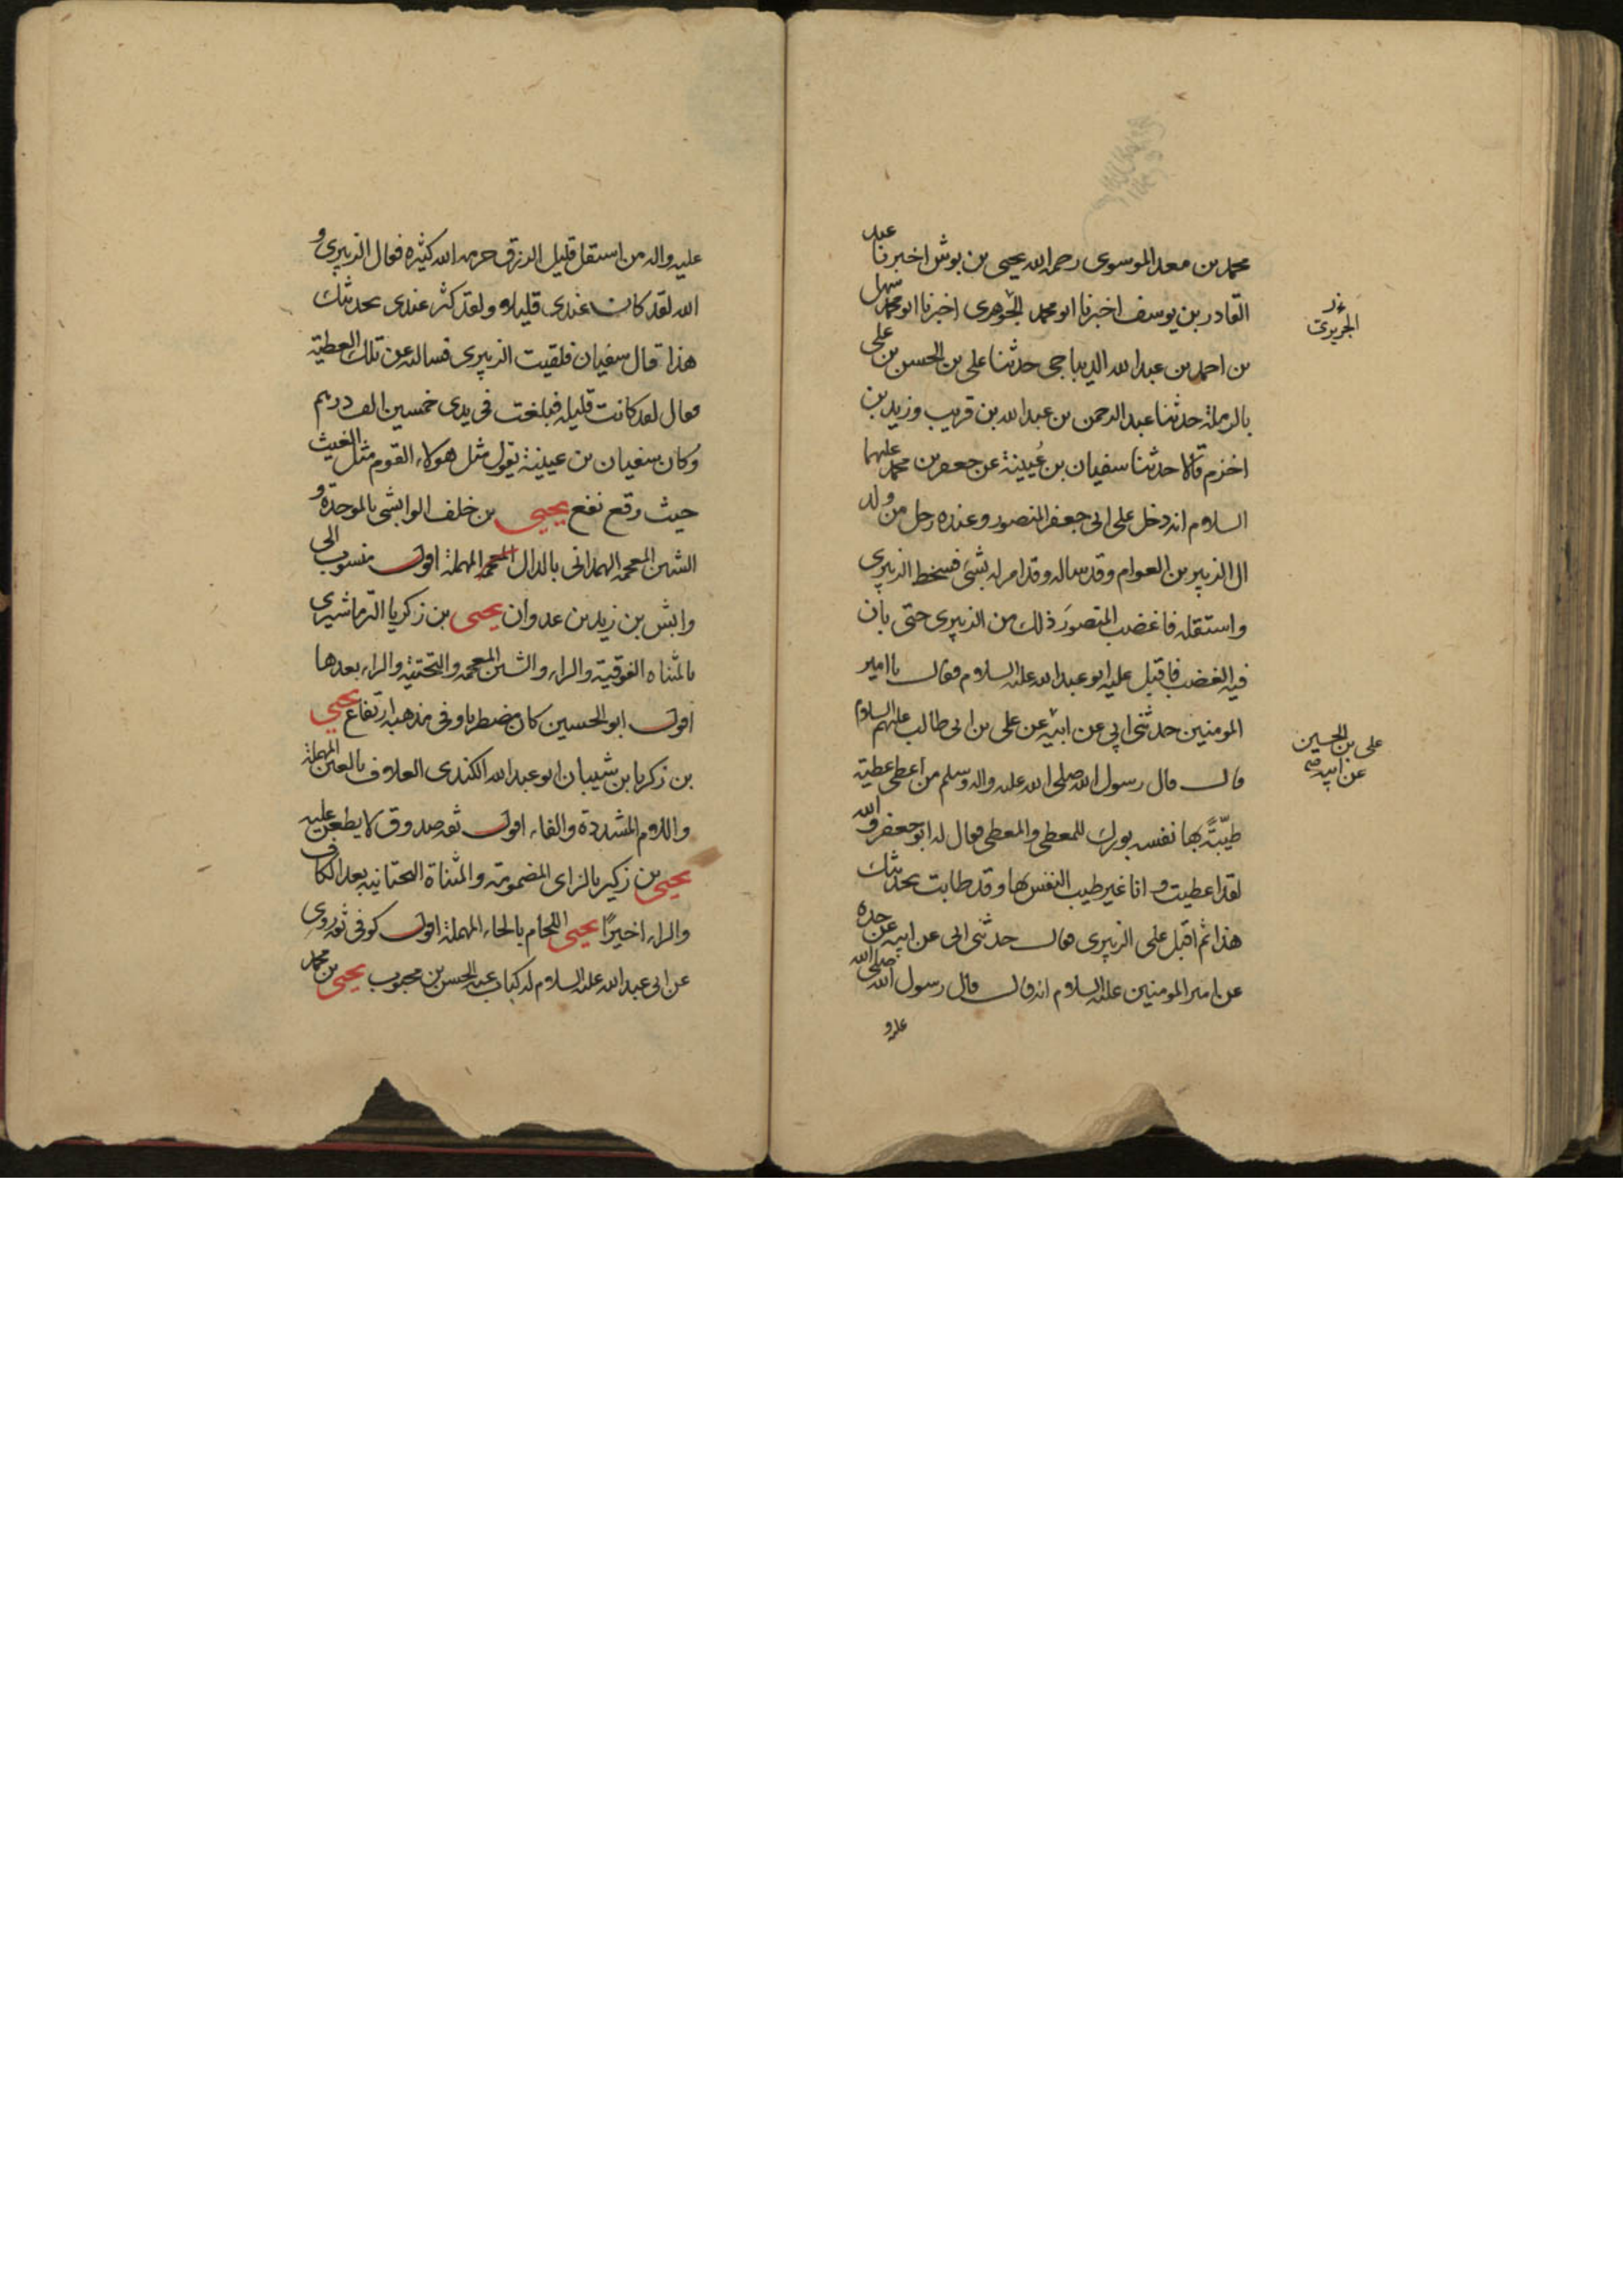 محمد بن معد الموسوى رحمه الله يحيى بن بوش اخبرنا عبد
القادر بن يوسف اخبرنا ابو محمد الجوهرى اخبرنا ابو محمد سهل
بن احمد بن عبد الله الديباجى حدثنا على بن الحسن بن على
بالرملة حدثنا عبد الرحمن بن عبد الله بن قريب وزيد بن
اخزم قالا حدثنا سفيان بن عُيينة عن جعفر بن محمد عليهما
السلام انه دخل على ابى جعفر المنصور وعنده رجل من ولد
ال الزبير بن العوام وقد ساله وقد امر له بشئ فسخط الزبيرى
واستقله فاغضب المنصور ذلك من الزبيرى حتى بان
فيه الغضب فاقبل عليه ابو عبد الله عليه السلام فقال يا امير
المومنين حدثنى ابى عن ابيه عن على بن ابى طالب عليهم السلام
قال قال رسول الله صلى الله عليه واله وسلم من اعطى عطية
طيّبةً بها نفسه بورك للمعطى والمعطى فقال له ابو جعفر والله
لقد اعطيت و انا غير طيب النفس بها وقد طابت بحديثك
هذا ثم اقبل على الزبيرى فقال حدثنى ابى عن ابيه عن جده
عن امير المومنين عليه السلام انه قال قال رسول الله صلى الله
عليه و
الجريرى
على بن الحسين
عن ابيه صح
عليه واله من استقل قليل الرزق حرمه الله كثيره فقال الزبيرى و
الله لقد كان عندى قليلا ولقد كثر عندى بحديثك
هذا قال سفيان فلقيت الزبيرى فسالته عن تلك العطية
فقال لقد كانت قليله فبلغت فى يدى خمسين الف درهم
وكان سفيان بن عيينة يقول مثل هولاء القوم مثل الغيث
حيث وقع نفع يحيى بن خلف الوابشى بالموحدة و
الشين المعجمه الهمدانى بالدال المعجمه المهملة اقول منسوب الى
وابش بن زيد بن عدوان يحيى بن زكريا الترماشيرى
بالمثناه الفوقية والراء والشين المعجمه والتحتية والراء بعدها
اقول ابو الحسين كان مضطربا وفى مذهبه ارتفاع يحيى
بن زكريا بن شيبان ابو عبد الله الكندى العلاف بالعين المهملة
واللام المشددة والفاء اقول ثقه صدوق لا يطعن عليه
يحيى بن زكير بالزاى المضمومة والمثناة التحتانيه بعد الكاف
والراء اخيرًا يحيى اللحام بالحاء المهملة اقول كوفى ثقه روى
عن ابى عبد الله عليه السلام له كتاب عنه الحسن بن محبوب يحيى بن محمد